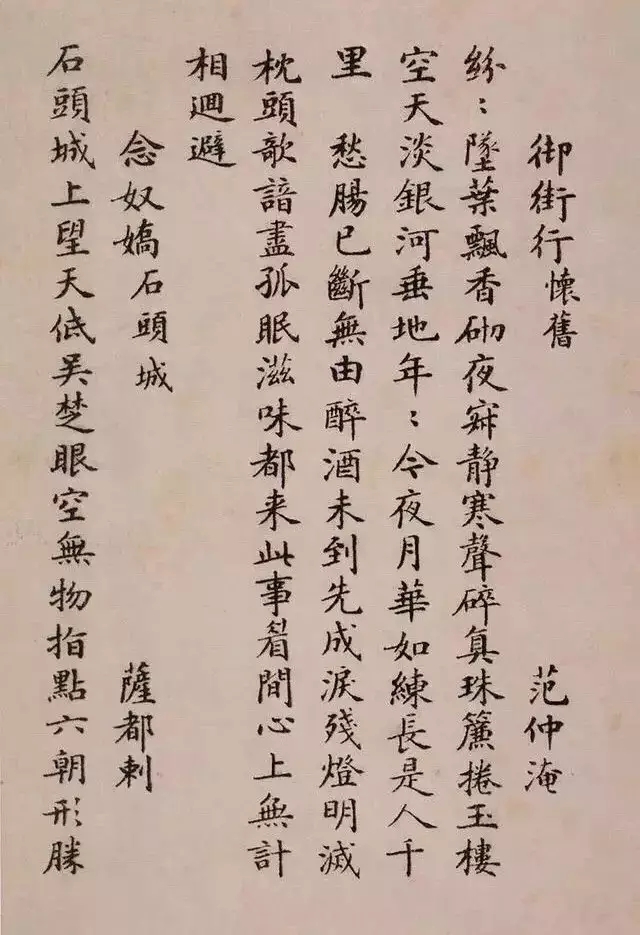 御街行懷舊 范仲淹
紛：墜葉飄香砌夜寂静寒聲碎真珠簾捲玉樓
空天淡銀河垂地年：今夜月華如練長是人千
里 愁腸已斷無由醉酒未到先成淚殘燈明滅
枕頭欹諳盡孤眠滋味都来此事眉間心上無計
相迴避
念奴嬌石頭城 薩都剌
石頭城上望天低吴楚眼空無物指點六朝形勝